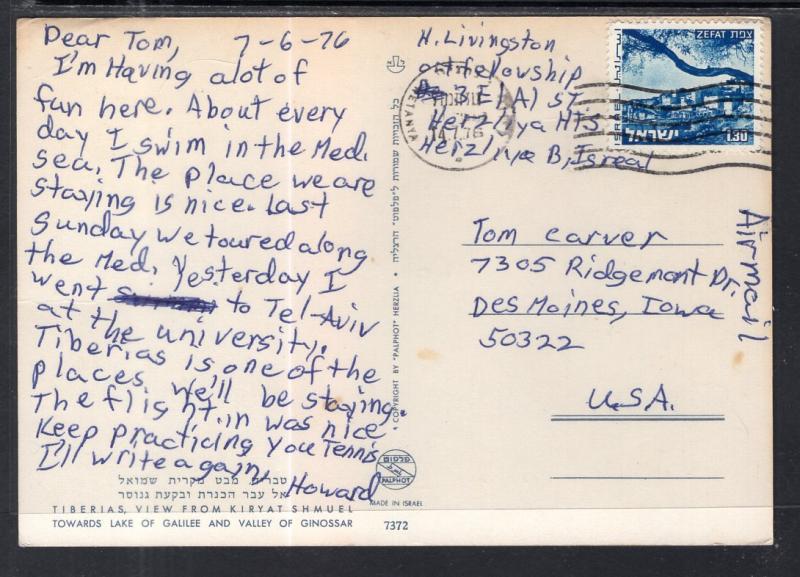 Dear Tom, 7-6-76
I'm Having a lot of
fun here. About every
day I swim in the Med.
sea. The place we are
staying is nice. Last
Sunday we toured along
the Med. Yesterday I
went to Tel-Aviv
at the university.
Tiberias is one of the
places we'll be staying.
The flight in was nice
Keep practicing you Tennis
I'll write again,
Howard
טבריה, מבט מקרית שמואל
אל עבר הכנרת ובקעת גנוסר
TIBERIAS, VIEW FROM KIRYAT SHMUEL
TOWARDS LAKE OF GALILEE AND VALLEY OF GINOSSAR
7372
כל הזכויות שמורות ל"פלפוט" הרצליה
© COPYRIGHT BY "PALPHOT" HERZLIA
פלפוט
PALPHOT
MADE IN ISRAEL
H. Livingston
ort fellowship
3 El Al st.
Herzliya Hts
Herzliya B, Isreal
NETANYA
14.7.76
ZEFAT צפת
ישראל
1.30
Tom Carver
7305 Ridgemont Dr.
Des Moines, Iowa
50322
U.S.A.
Airmail